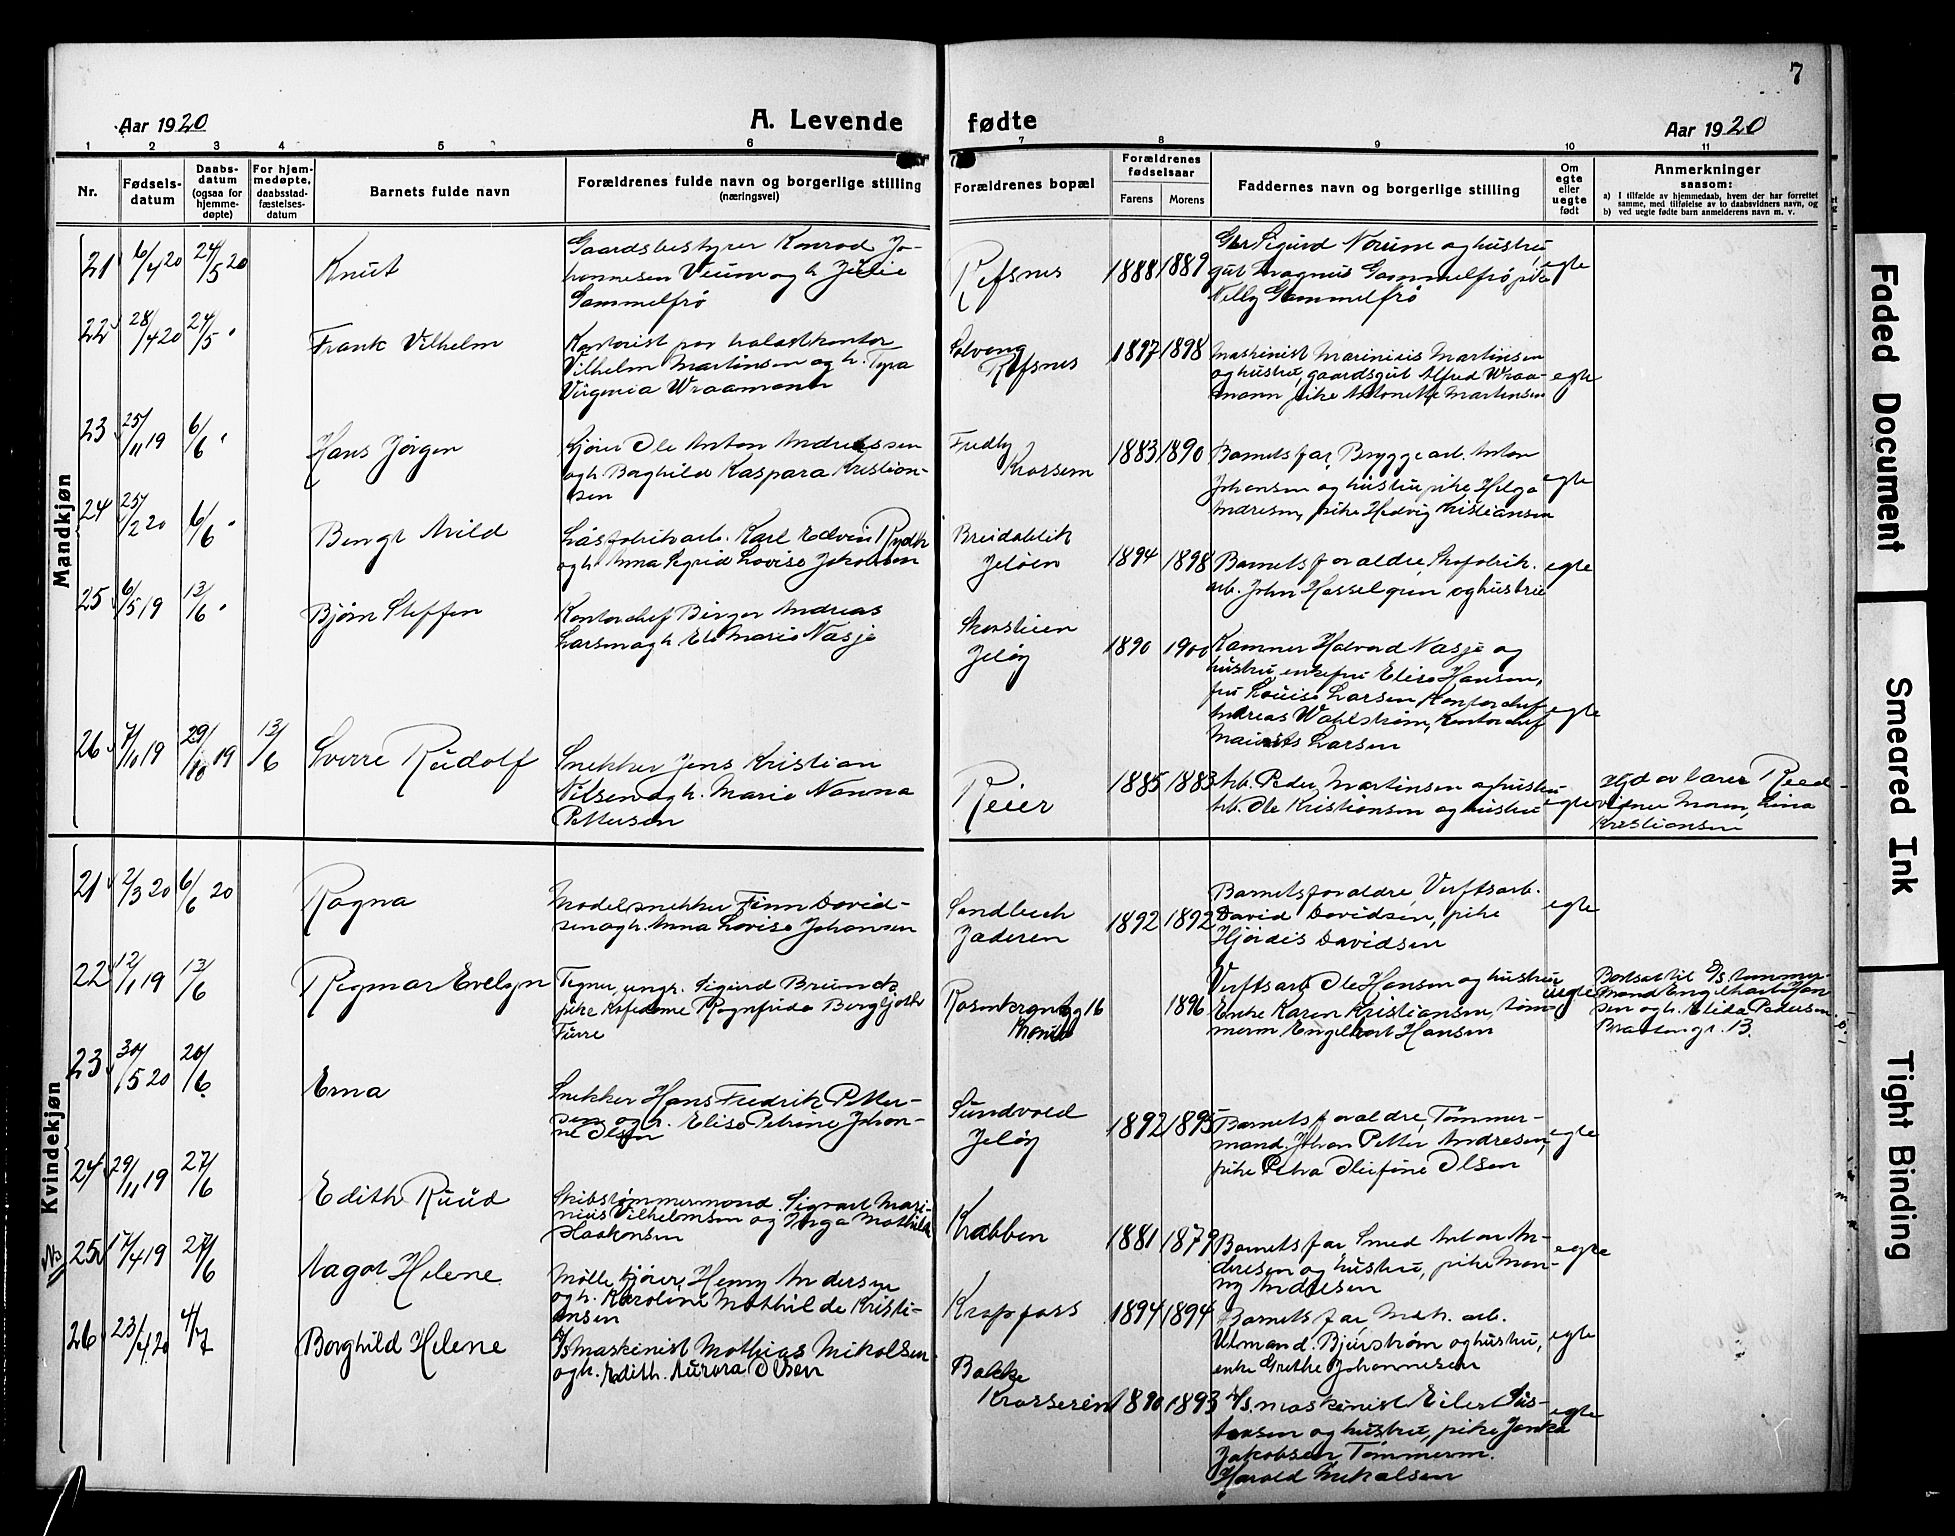 7
Aar 1920
A. Levende fødte
Aar 1920
1 2 3 4 5 6 7 8 9 10 11
Nr.
Fødsels-
datum
Daabs-
datum
(ogsaa for
hjemme-
døpte)
For hjem-
medøpte,
daabsstad-
fæstelses-
datum
Barnets fulde navn
Forældrenes fulde navn og borgerlige stilling
(næringsvei)
Forældrenes bopæl
Forældrenes
fødselsaar
Farens
Morens
Faddernes navn og borgerlige stilling
Om
egte
eller
uegte
født
Anmerkninger
saasom:
a) I tilfælde av hjemmedaab, hvem der har forrettet
samme, med tilføielse av to daabsvidners navn, og
b) ved uegte fødte barn anmelderens navn m. v.
Mandkjøn
21 6/4 20 24/5 20
Knut
Gaardsbestyrer Konrad Jo-
hannesen Veum og h. Julie
Gammelfrø
Refsnes
1888 1889
Sigurd Norum og hustru,
gut Magnus Gammelfrø, pike
Nelly Gammelfrø
egte
22 28/4 20 24/5 "
Frank Vilhelm
Kontorist paa
Vilhelm Martinsen og h. Tyra
Virginia Wraamann
Solveng
Refsnes
1897 1898
Maskinist Marinius Martinsen
og hustru, gaardsgut Alfred Wraa-
mann, pike Antonette Martinsen
egte
23 25/11 19 6/6 "
Hans Jørgen
Kjører Ole Anton Andreassen
og h. Borghild Kaspara Kristian-
sen
Fredly
1883 1890
Barnets far, Bryggearb. Anton
Johansen og hustru, pike Helga
Andresen, pike Hedvig Kristiansen
egte
24 25/2 20 6/6 "
Bengt Arild
Låsfabrikarb. Karl Edvin Rydh
og h. Anna Sigrid Lovise Jakobsen
Breidablik
Jeløen
1894 1898
Barnets foraldre, Skofabrik.
arb. John Hasselgren og hustru
egte
25 6/5 19 13/6 "
Bjørn Steffen
Kontorchef Birger Andreas
Larsen og h. Marie Nasje
Jeløy
1890 1900
Halvard Nasje og
hustru, enkefru Elise Hansen,
fru Louise Larsen, Kontorchef
Andreas Wahlstrøm, Kontorchef
Larsen
egte
26 7/10 19 29/10 19 13/6
Sverre Rudolf
Snekker Jens Kristian
Nilsen og h. Marie Nanna
Pettersen
Reier
1885 1883
Arb. Peder Martinsen og hustru
Arb. Ole Kristiansen og hustru
egte
Hjd av lærer Reed
Lina
Kristiansen
Kvindekjøn
21 2/3 20 6/6 20
Ragna
Modelsnekker Finn David-
sen og h. Anna Lovise Johansen
Sandbech
1892 1892
Barnets foraldre, Verftsarb.
David Davidsen, pike
Hjørdis Davidsen
egte
22 12/1 19 13/6
Ragmar Evelyn
Tegner, ungk. Sigurd
pike Kafedame Ragnfrida Bergljot
Furre
Rosenkrantzg 16
1896
Verftsarb. Ole Hansen og hustru
Enke Karen Kristiansen, tøm-
merm Engelhart Hansen
uegte
Bortsat til tømmer-
mand Engelhart Han-
sen og h. Elida Pedersen
gt. 13.
23 30/5 20 20/6
Erna
Snekker Hans Fredrik Petter-
sen og h. Elise Petrine Johan-
ne Olsen
Sundvold
Jeløy
1892 1895
Barnets foraldre, Tømmer-
mand. Johan Petter Andresen,
pike Petra Olufine Olsen
egte
24 29/11 19 27/6
Edith Ruud
Skibstømmermand. Sigvart Mari-
nius Vilhelmsen og Inga Mathilde
Haakonsen
Krabben
1881 1879
Barnets far Smed Anton An-
dresen og hustru, pike Man-
ny Andresen
egte
No
25 17/4 19 27/6
Aagot Helene
Møllekjører Henry Andersen
og h. Karoline Mathilde Kristi-
ansen
Krapfoss
1894 1894
Barnets far, Mek. arb.
Utmand. Bjurstrøm og hustru,
enke Grethe Johannesen
egte
26 23/4 20 4/7
Borghild Helene
maskinist Mathias Mikalsen
og h. Edith Aurora Olsen
Bakke
1890 1893
maskinist Eilert Gus-
tavsen og hustru, pike
Jakobsen, Tømmerm.
Harald Mikalsen
egte
Faded Document
Smeared Ink
Tight Binding